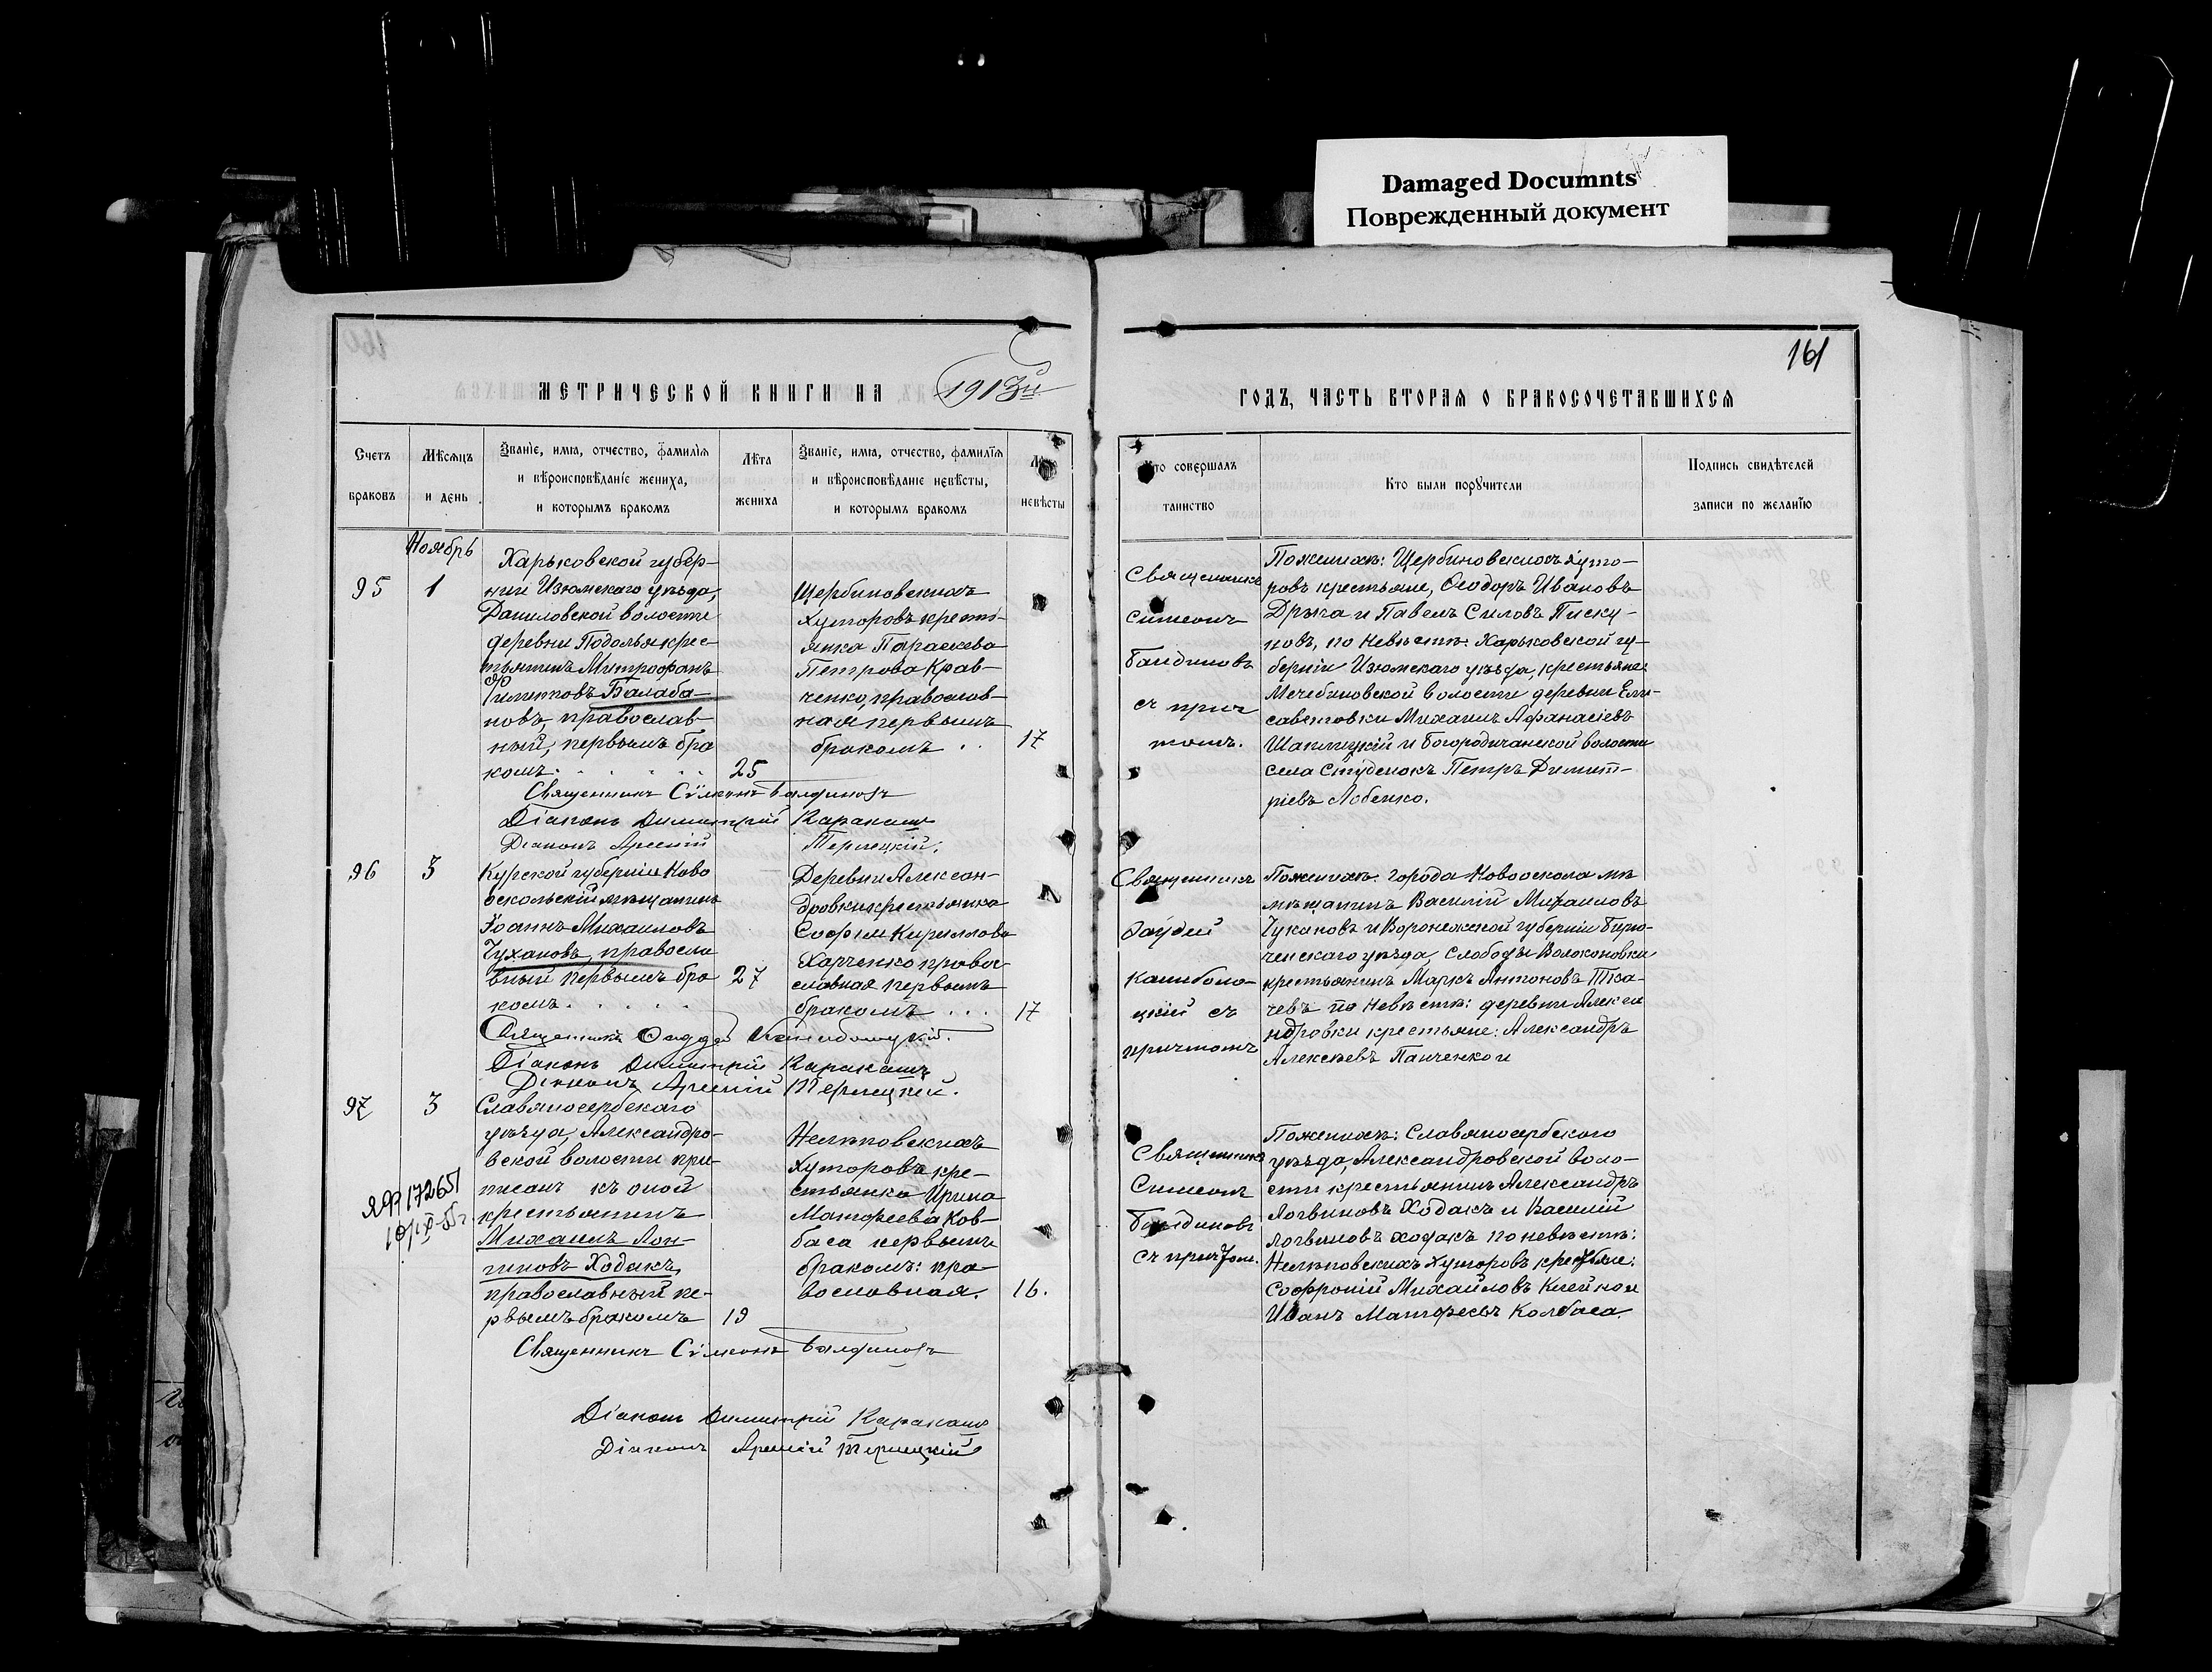 Damaged Documnts
Поврежденный документ
161
МЕТРИЧЕСКОЙ КНИГИ НА 1913й
ГОДЪ, ЧАСТЬ ВТОРАЯ О БРАКОСОЧЕТАВШИХСЯ
Счетъ браковъ
Мѣсяцъ и день
Званіе, имя, отчество, фамилія
и вѣроисповѣданіе жениха,
и которымъ бракомъ
Лѣта жениха
Званіе, имя, отчество, фамилія
и вѣроисповѣданіе невѣсты,
и которымъ бракомъ
невѣсты
Кто совершалъ
таинство
Кто были поручители
Подпись свидѣтелей
записи по желанію
Ноябрь
95
1
Харьковской губер-
ніи Изюмскаго уѣзда,
Даниловской волости
деревни Подолья крес-
тьянинъ Митрофанъ
Филиповъ Балаба-
новъ, православ-
ный, первымъ бра
комъ.
25
Щербиновскихъ
хуторовъ кресть-
янка Параскева
Петрова Крав-
ченко, православ-
ная первымъ
бракомъ
17
Священникъ
Симеонъ
Балдиновъ
съ прич
томъ.
По женихѣ: Щербиновскихъ хуто-
ровъ крестьяне, Ѳеодоръ Ивановъ
Дрыга и Павелъ Силовъ Писку-
новъ, по невѣстѣ: Харьковской гу-
берніи Изюмскаго уѣзда, крестьяне:
Мечебиловской волости деревни Ели-
саветовки Михаилъ Афанасіевъ
и Богородичанской волости
села Студенокъ Петръ Димит-
ріевъ Лобенко.
Священникъ Сѵмеонъ Балдиновъ
Діаконъ Димитрій Каракашъ
Діаконъ Арсеній Терлецкій.
96
3
Курской губерніи Ново
оскольскій мѣщанинъ
Іоаннъ Михаиловъ
Чухановъ, правосла
вный первымъ бра
комъ.
27
Деревни Алексан-
дровки крестьянка
Софія Кириллова
Харченко право-
славная первымъ
бракомъ
17
Священникъ
Фаддей
съ
причтомъ
По женихѣ: города Новооскола мѣ
мѣщанинъ Василій Михаиловъ
Чукановъ и Воронежской губерніи Бирю-
ченскаго уѣзда, слободы Волоконовки
крестьянинъ Маркъ Антоновъ Тка-
чевъ по невѣстѣ: деревни Алекса
ндровки крестьяне: Александръ
Алексѣевъ Панченко и
Священникъ Фаддей
Діаконъ Димитрій Каракашъ
Діаконъ Арсеній Терлецкій.
97
3
Славяносербскаго
уѣзда, Александро-
вской волости при-
писанъ къ оной
крестьянинъ
Михаилъ Лон-
гиновъ Ходакъ,
православный пе-
рвымъ бракомъ
19
Нелѣповскихъ
хуторовъ кре-
стьянка Ирина
Матфеева Ков-
баса первымъ
бракомъ: пра
вославная.
16.
Священникъ
Симеонъ
Балдиновъ
съ причтом.
По женихѣ: Славяносербскаго
уѣзда, Александровской воло-
сти крестьянинъ Александръ
Логвиновъ Ходакъ и Василій
Логвиновъ Ходакъ по невѣстѣ:
Нелѣповскихъ хуторовъ крестьяне:
Софроній Михайловъ Клейнои
Иванъ Матфеевъ Колбаса.
Священникъ Сѵмеонъ Балдиновъ
Діаконъ Димитрій Каракашъ
Діаконъ Арсеній Терлецкій